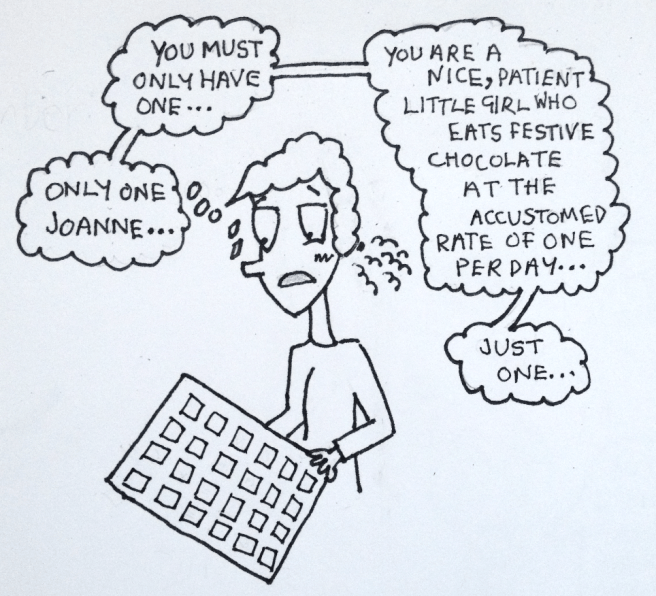 ONLY ONE
JOANNE...
YOU MUST
ONLY HAVE
ONE...
YOU ARE A
NICE, PATIENT
LITTLE GIRL WHO
EATS FESTIVE
CHOCOLATE
AT THE
ACCUSTOMED
RATE OF ONE
PER DAY...
JUST
ONE...